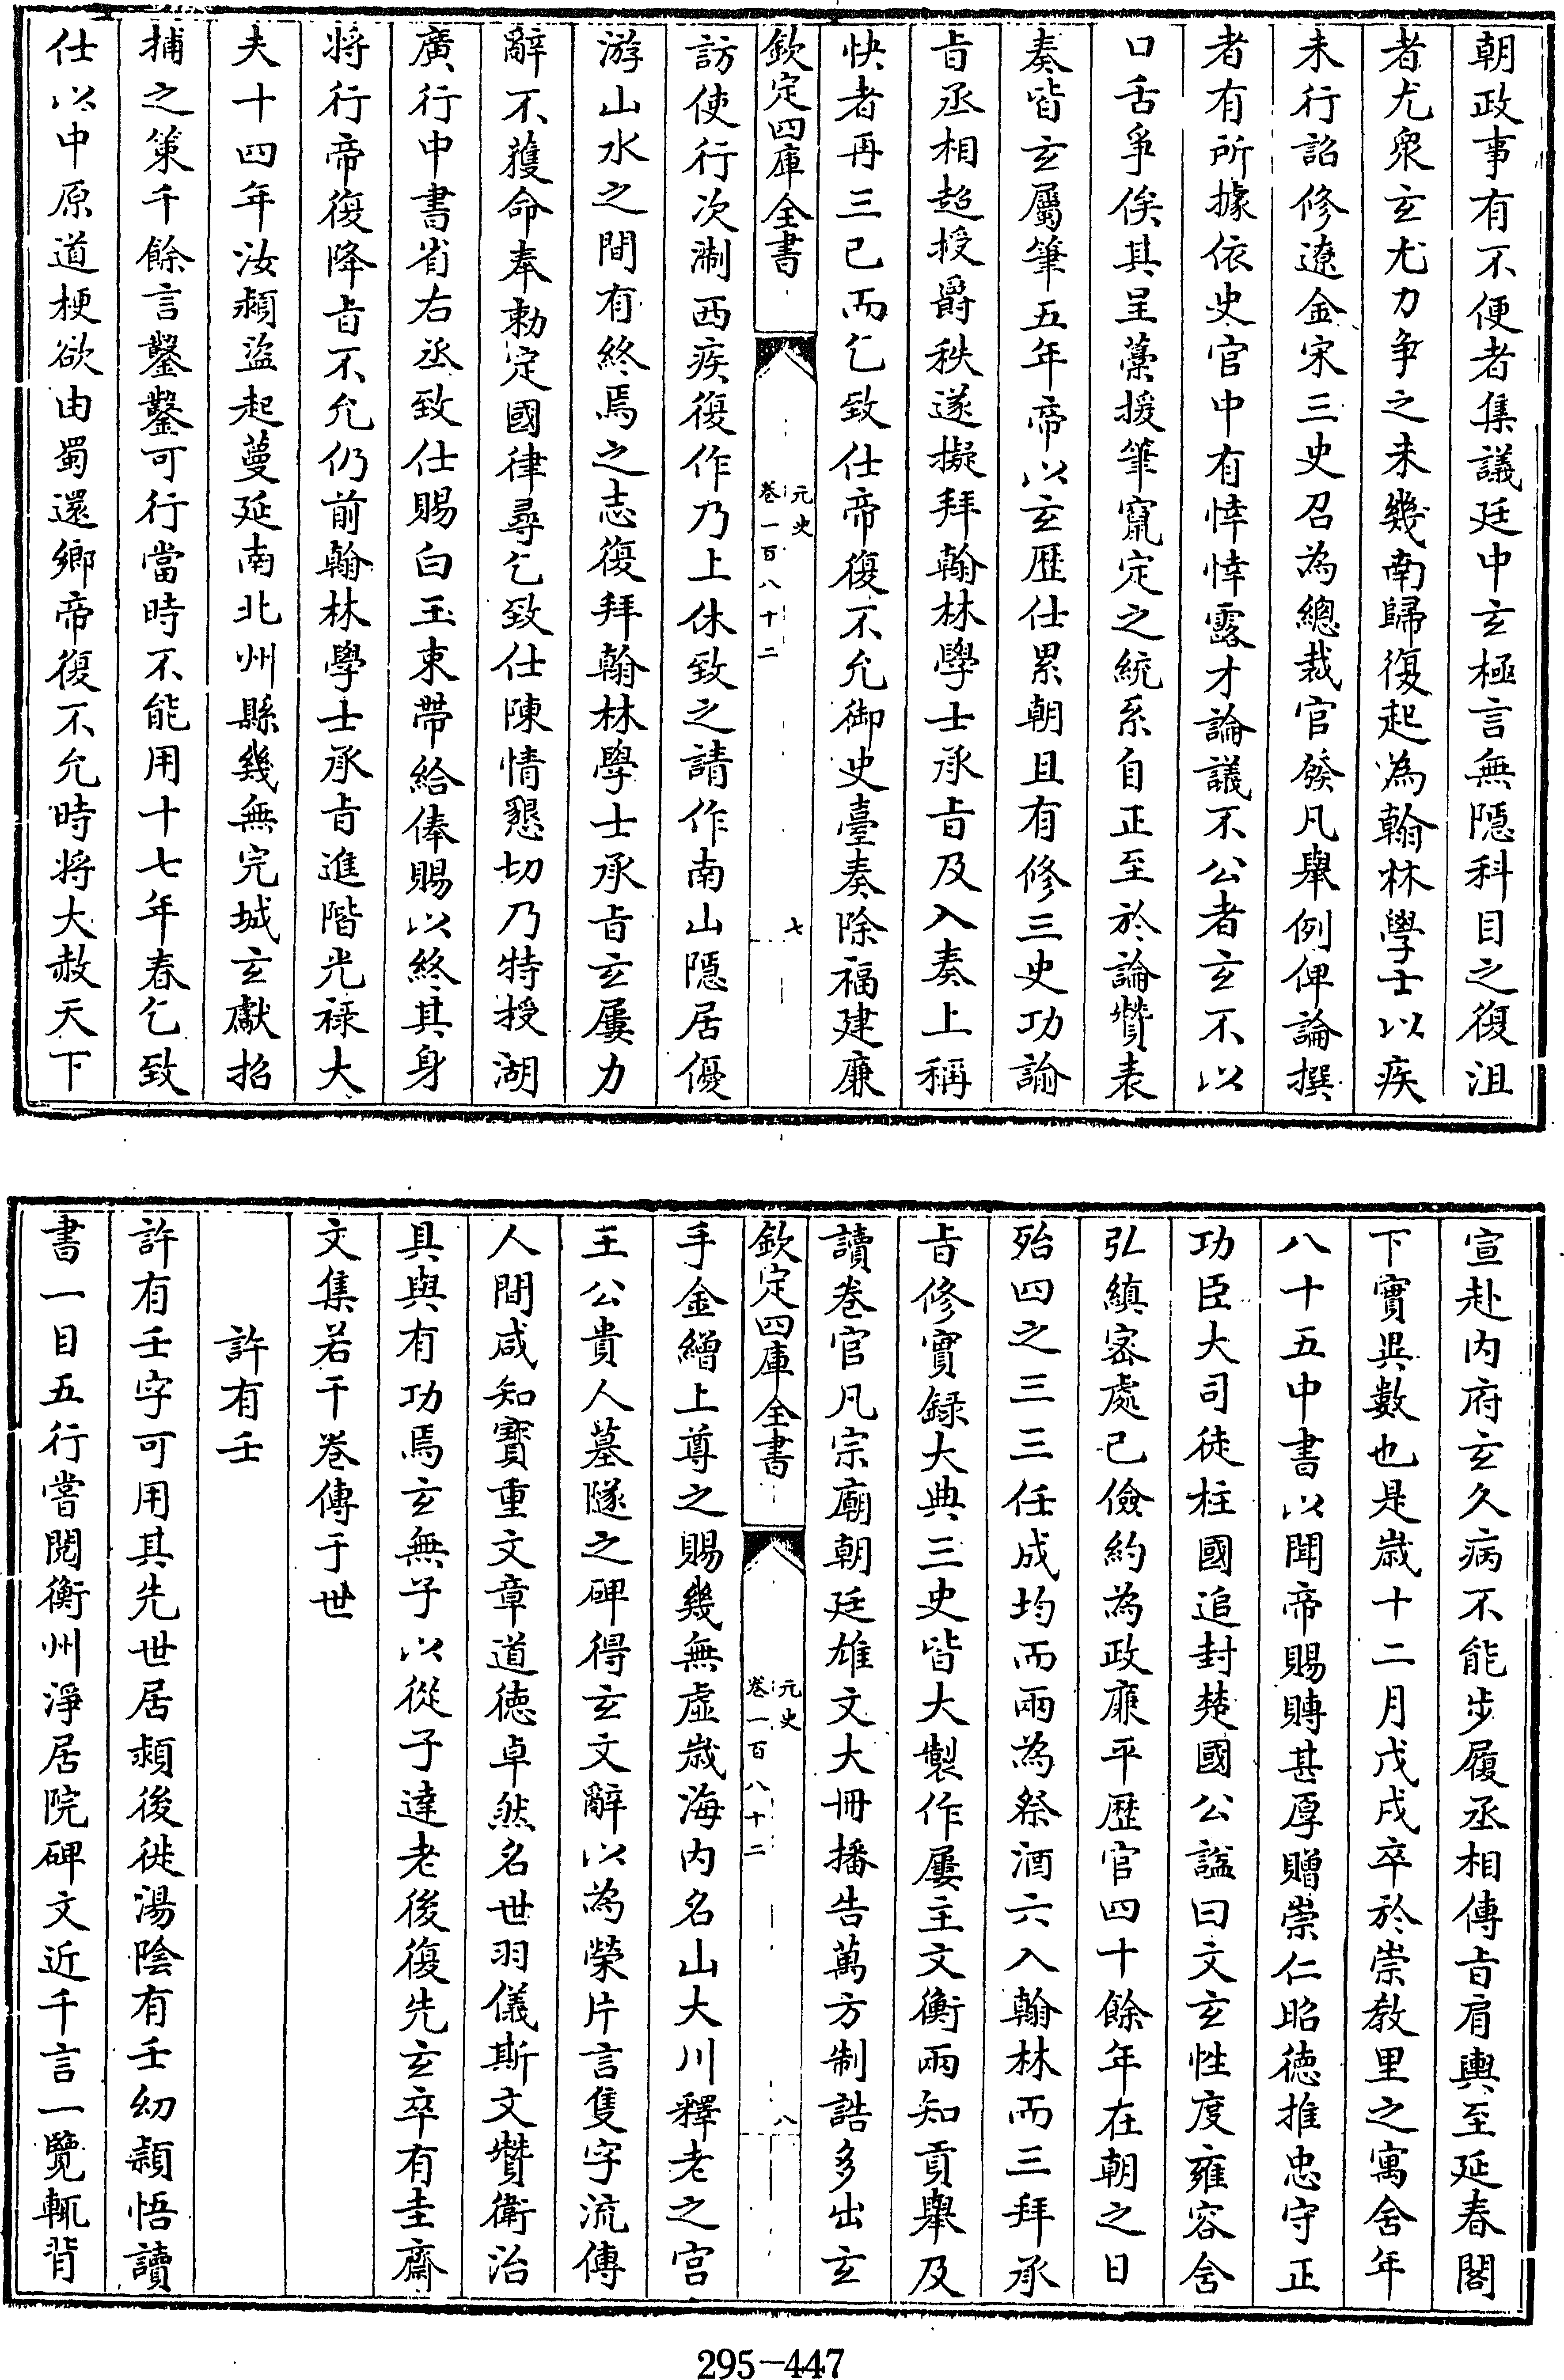 朝政事有不便者集議廷中玄極言無隱科目之復沮
者尤衆玄尤力爭之未幾南歸復起為翰林學士以疾
未行詔修遼金宋三史召為總裁官發凡舉例俾論撰
者有所據依史官中有悻悻露才論議不公者玄不以
口舌爭俟其呈藁援筆竄定之統系自正至於論贊表
奏皆玄屬筆五年帝以玄歷仕累朝且有修三史功諭
旨丞相超授爵秩遂擬拜翰林學士承旨及入奏上稱
快者再三已而乞致仕帝復不允御史臺奏除福建廉
欽定四庫全書
元史
卷一百八十二
七
訪使行次淛西疾復作乃上休致之請作南山隱居優
游山水之間有終焉之志復拜翰林學士承旨玄屢力
辭不獲命奉勅定國律尋乞致仕陳情懇切乃特授湖
廣行中書省右丞致仕賜白玉束帶給俸賜以終其身
將行帝復降旨不允仍前翰林學士承旨進階光祿大
夫十四年汝潁盜起蔓延南北州縣幾無完城玄獻招
捕之策千餘言鑿鑿可行當時不能用十七年春乞致
仕以中原道梗欲由蜀還鄉帝復不允時將大赦天下
宣赴内府玄久病不能步履丞相傳旨肩輿至延春閣
下實異數也是歲十二月戊戌卒於崇教里之寓舍年
八十五中書以聞帝賜賻甚厚贈崇仁昭德推忠守正
功臣大司徒柱國追封楚國公諡曰文玄性度雍容含
弘縝密處己儉約為政廉平歷官四十餘年在朝之日
殆四之三三任成均而兩為祭酒六入翰林而三拜承
旨修實録大典三史皆大製作屢主文衡兩知貢舉及
讀卷官凡宗廟朝廷雄文大冊播告萬方制誥多出玄
欽定四庫全書
元史
卷一百八十二
八
手金繒上尊之賜幾無虛歲海内名山大川釋老之宫
王公貴人墓隧之碑得玄文辭以為榮片言隻字流傳
人間咸知寶重文章道德卓然名世羽儀斯文贊衛治
具與有功焉玄無子以從子達老後復先玄卒有圭齋
文集若干卷傳于世
許有壬
許有壬字可用其先世居潁後徙湯陰有壬幼穎悟讀
書一目五行嘗閲衡州淨居院碑文近千言一覽輒背
295-447